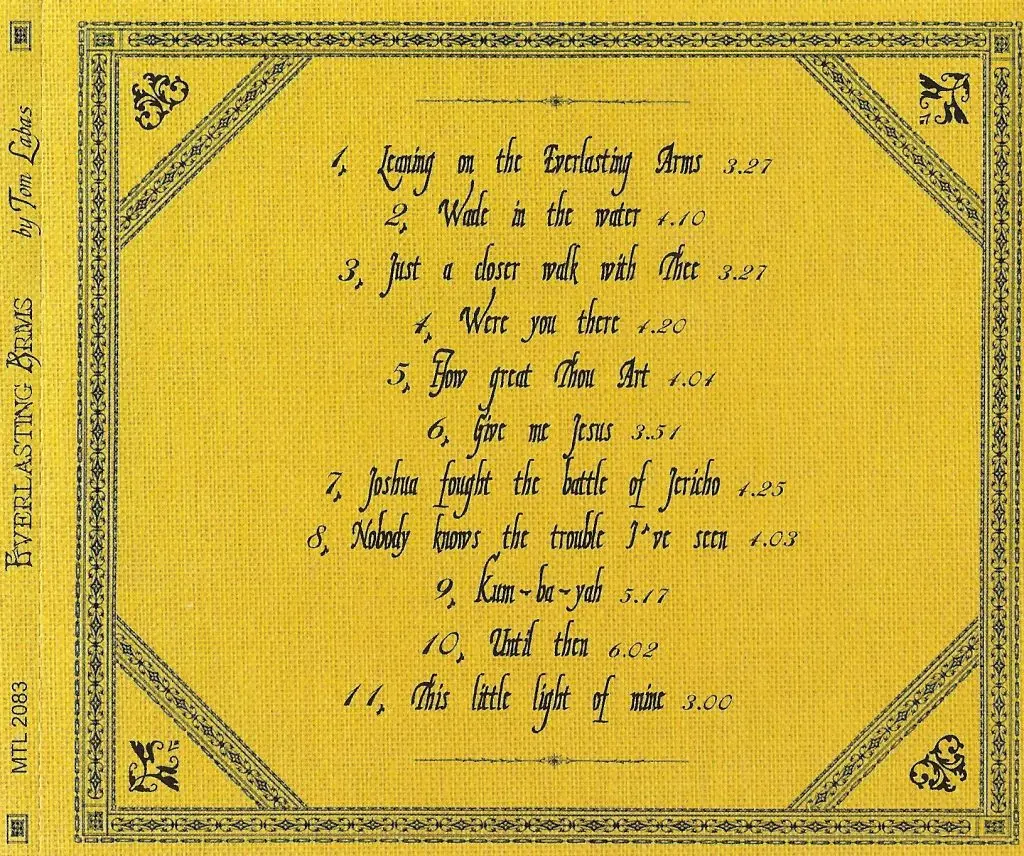 1, Leaning on the Everlasting Arms 3.27
2, Wade in the water 4.10
3, Just a closer walk with Thee 3.27
4, Were you there 4.20
5, How great Thou Art 4.04
6, Give me Jesus 3.51
7, Joshua fought the battle of Jericho 4.25
8, Nobody knows the trouble I've seen 4.03
9, Kum-ba-yah 5.17
10, Until then 6.02
11, This little light of mine 3.00
MTL 2083 EVERLASTING ARMS by Tom Labas